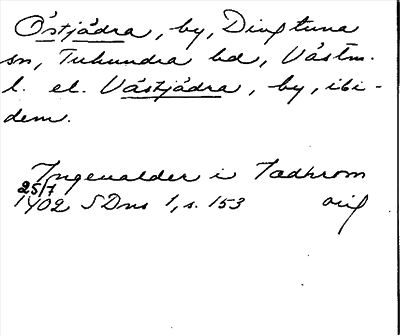 Östjädra, by, Dingtuna
sn, Tuhundra hd, Västm.
l. el. Västjädra, by, ibi-
dem.
Ingeualder i Jadhrom
25/7
1402 SDns 1, s. 153 orig